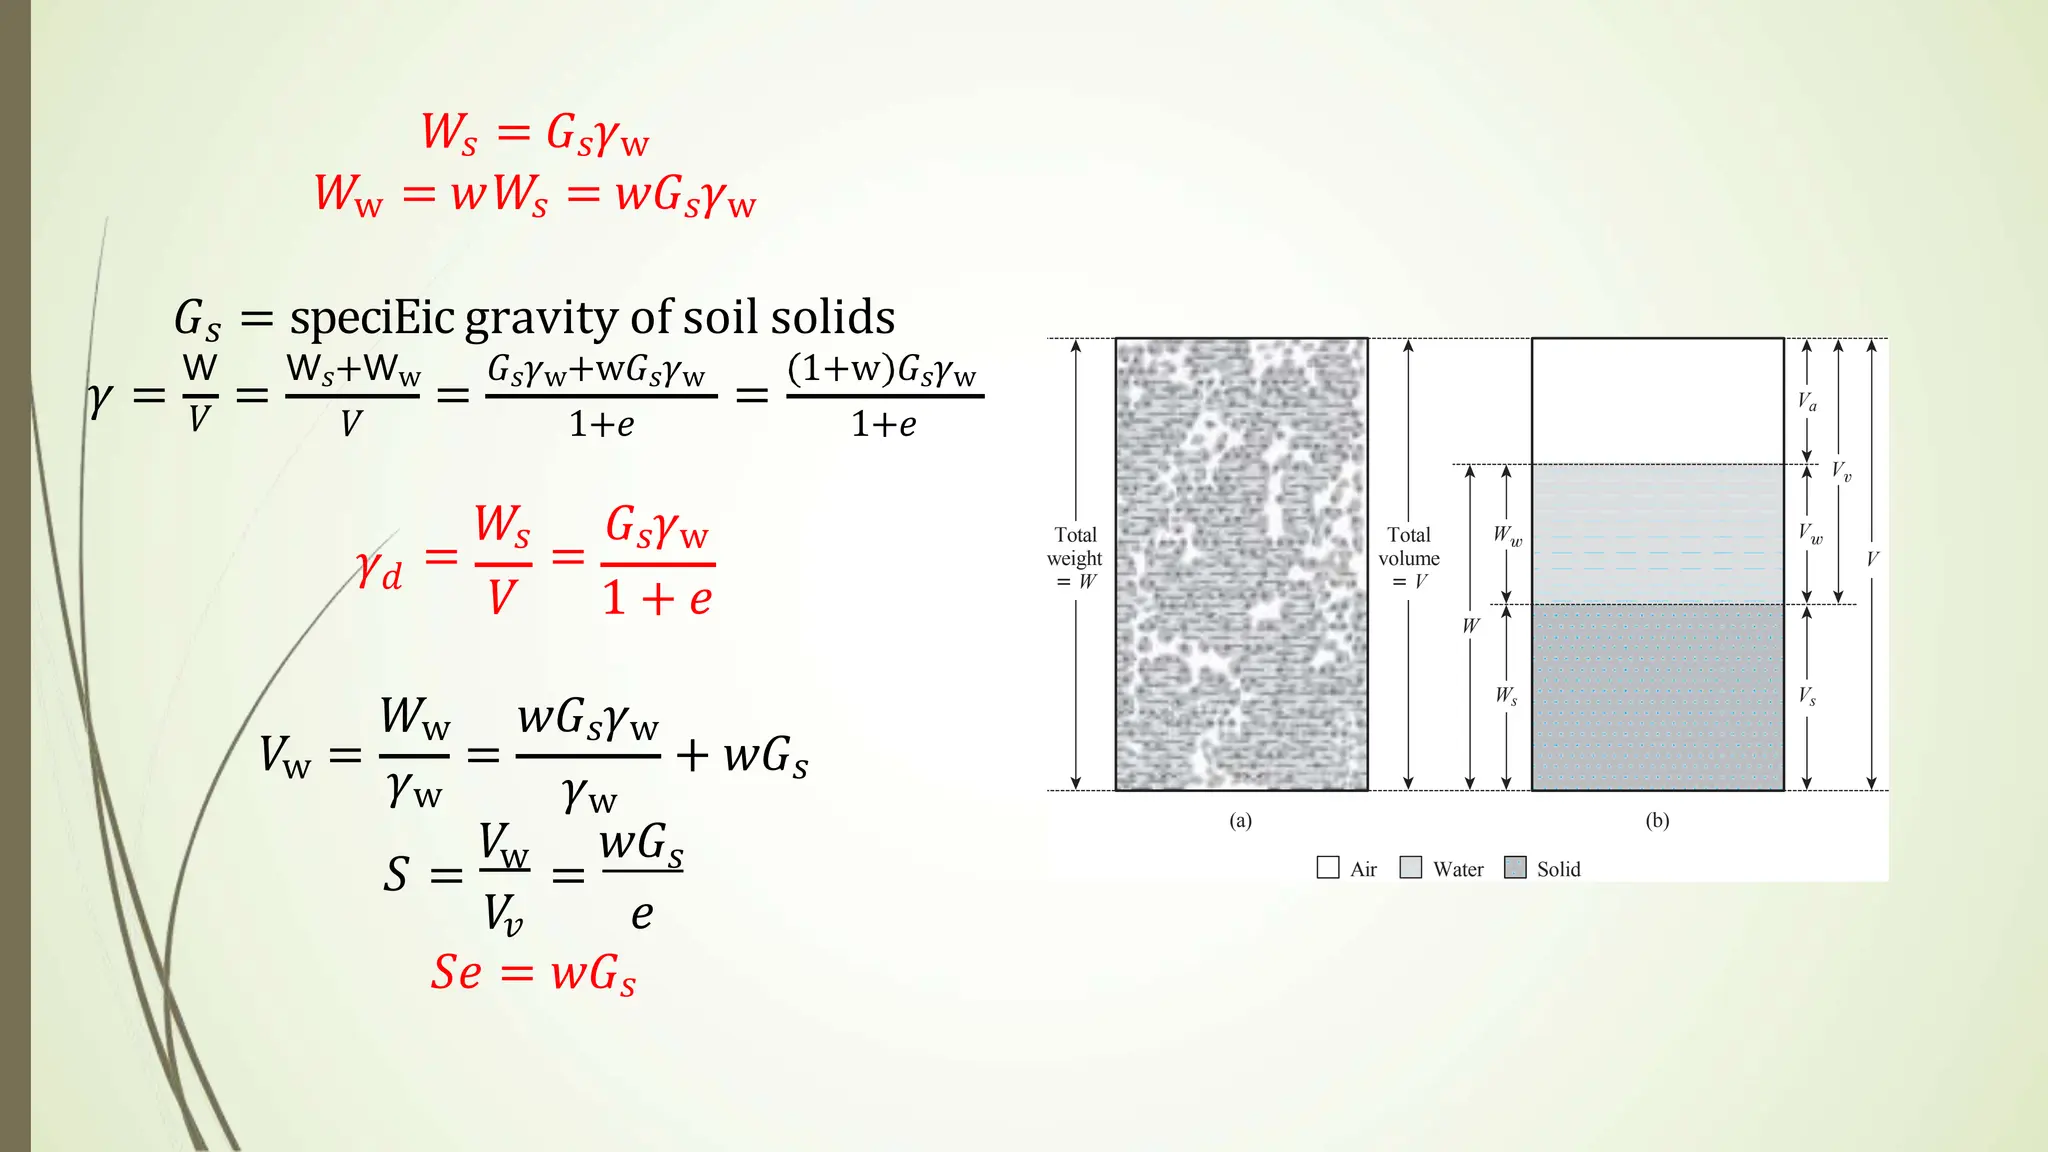 𝑊ₛ = 𝐺ₛ𝛾w
𝑊w = 𝑤𝑊ₛ = 𝑤𝐺ₛ𝛾w
𝐺ₛ = speciEic gravity of soil solids
𝛾 = W/𝑉 = (Wₛ+Ww)/𝑉 = (𝐺ₛ𝛾w+w𝐺ₛ𝛾w)/(1+𝑒) = (1+w)𝐺ₛ𝛾w/(1+𝑒)
𝛾𝑑 = 𝑊ₛ/𝑉 = 𝐺ₛ𝛾w/(1 + 𝑒)
𝑉w = 𝑊w/𝛾w = 𝑤𝐺ₛ𝛾w/𝛾w + 𝑤𝐺ₛ
𝑆 = 𝑉w/𝑉𝑣 = 𝑤𝐺ₛ/𝑒
𝑆𝑒 = 𝑤𝐺ₛ
Total
weight
= W
Total
volume
= V
W
Ww
Ws
Va
Vw
Vs
Vv
V
(a)
(b)
Air Water Solid